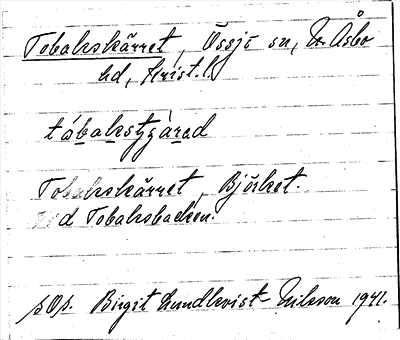 Tobakskärret, Össjö sn, N. Åsbo
hd, Krist. l.
tábakstʒàrad
Tobakskärret, Björket.
d Tobaksbacken.
sOp. Birgit Lundkvist-Nilsson 1941.